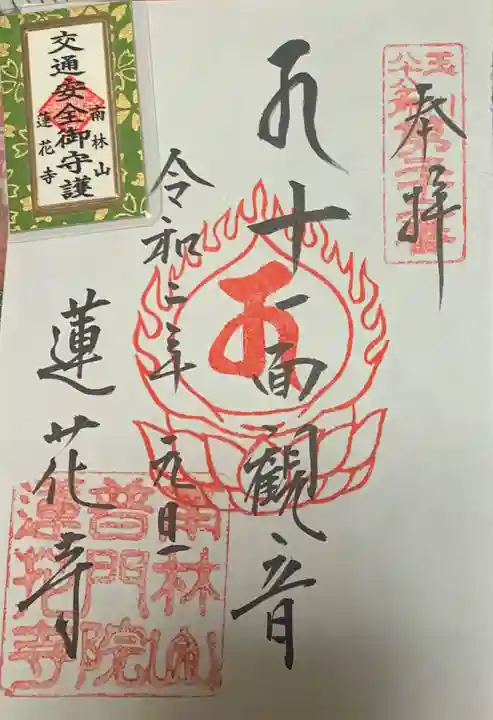 奉拝
十一面觀音
令和三年
蓮花寺
南林山
普門院
交通安全御守護
南林山
蓮花寺